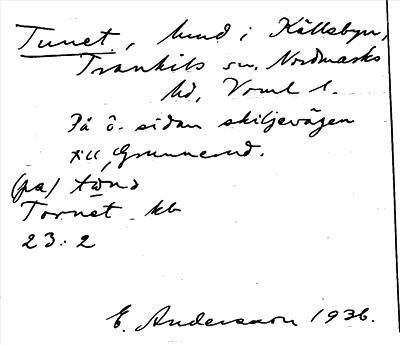 Tunet, lund i Källsbyn,
Trankils sn, Nordmarks
hd, Vrml l.
På ö. sidan skiljevägen
till Grunnerud.
(pa) tɷnə
Tornet kb
23:2
E. Andersson 1936.